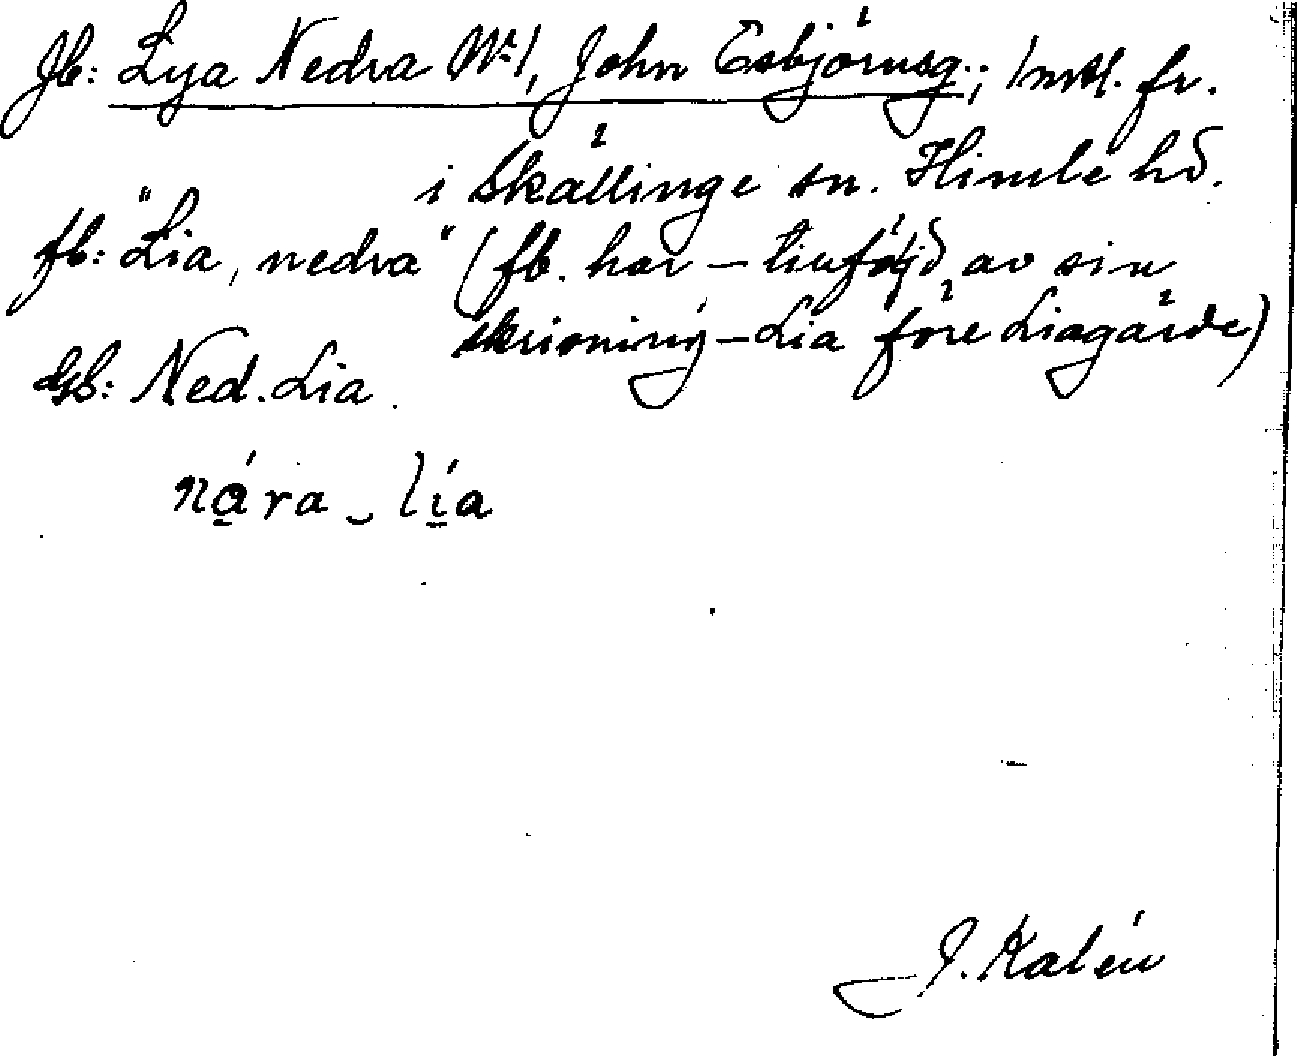 Jb: Lya Nedra No 1, John Esbjörnsg.; 1 mtl. fr.
i Skällinge sn. Himle hd.
fb: "Lia, nedra" (fb. har – av sin
skrivning – Lia före Liagärde)
Gb: Ned. Lia.
nára ‿ lía
J. Kalén